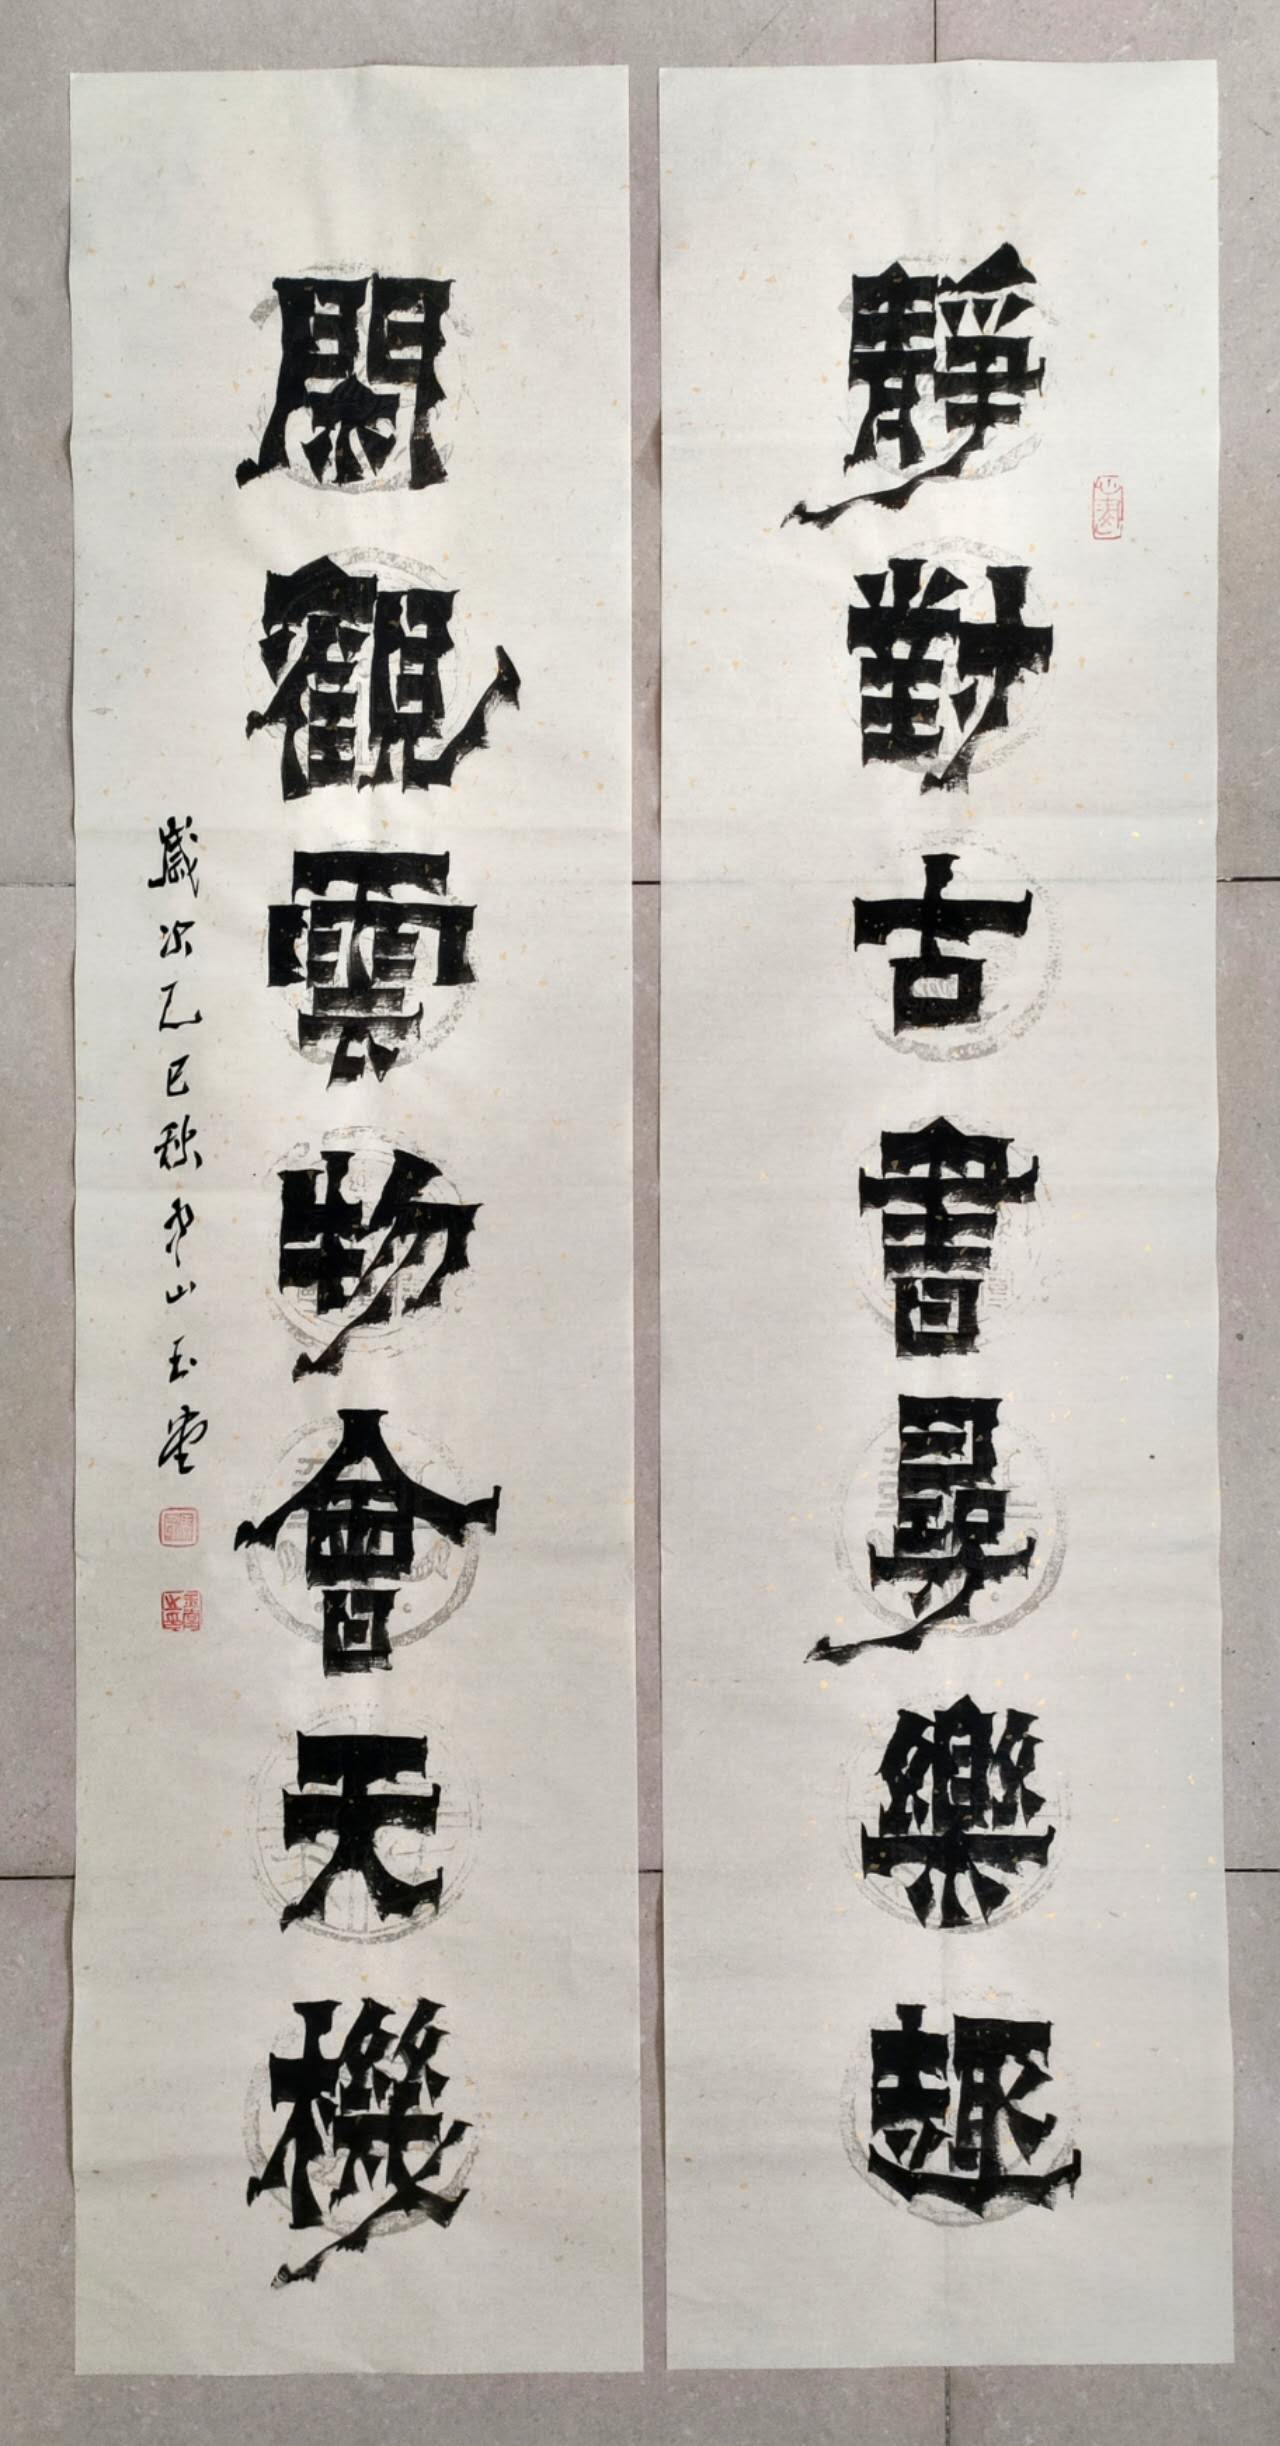 靜對古書尋樂趣
閑觀雲物會天機
歲次乙巳秋
山玉堂